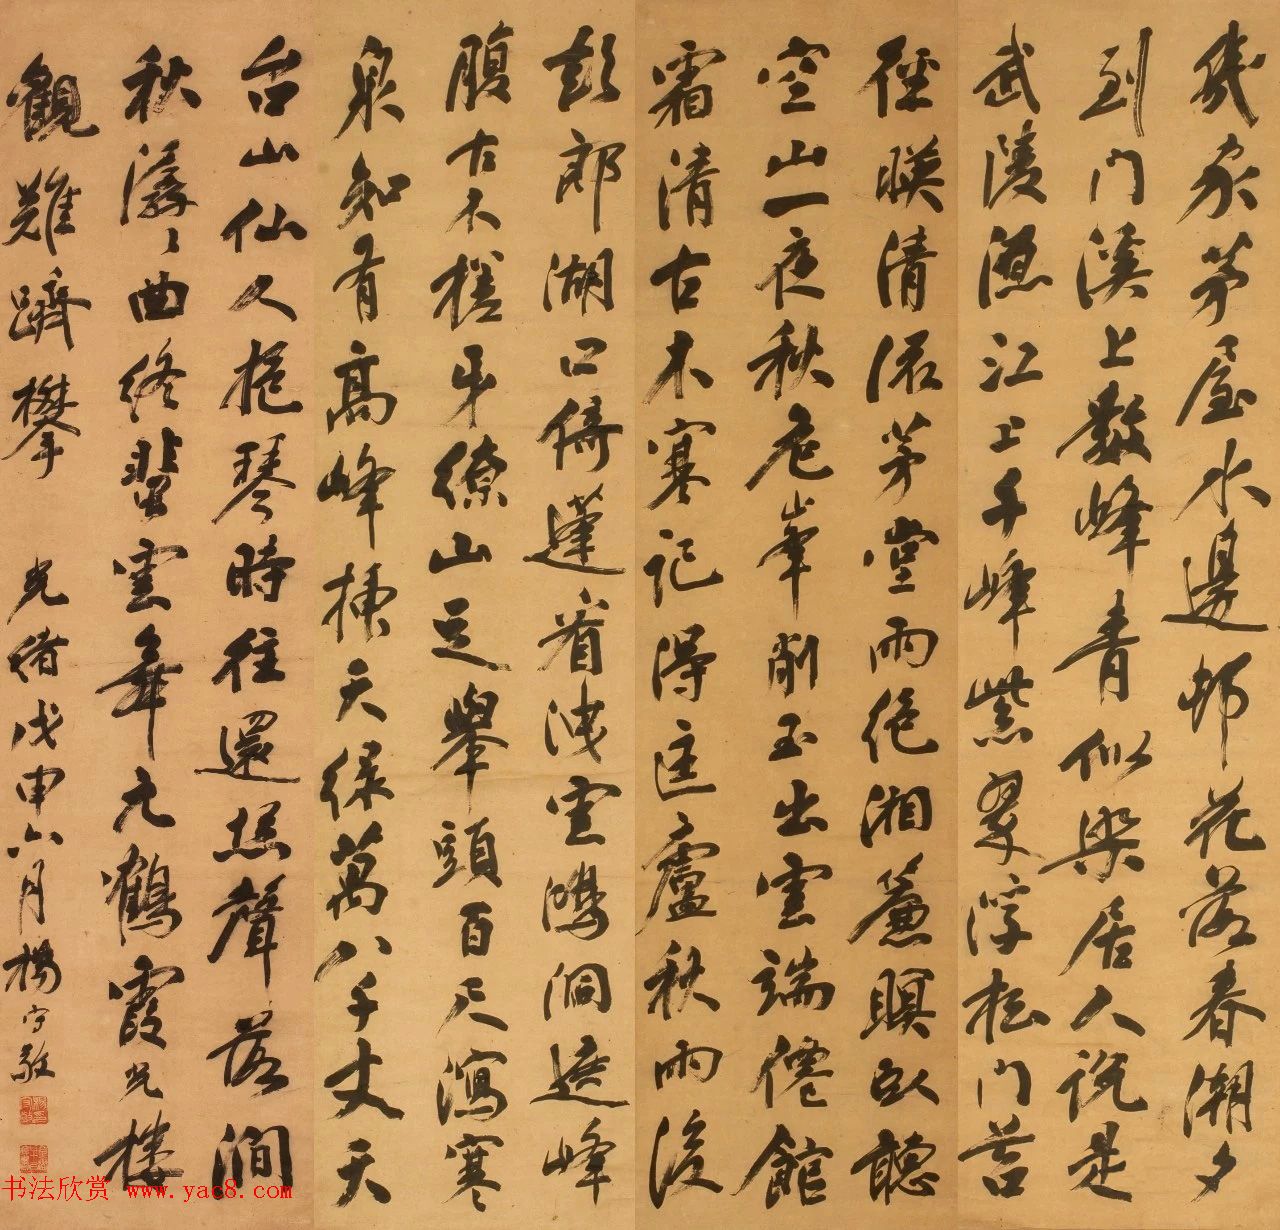 幾家茅屋水邊邨花落春潮夕
到門溪上數峰青似染居人說是
武陵源江上千峰紫翠浮松門苔
徑暎清流茅堂雨絕湘簾暝臥聽
空山一夜秋危峯削玉出雲端僊館
霜清古木寒記得匡廬秋雨後
彭郎湖口倚蓬看洩雲鴻洞遮峰
腹古木槎牙繚山足舉頭百尺瀉寒
泉知有高峰揷天綠萬八千丈天
台山仙人抱琴時往還松聲落澗
秋潺〻曲終輩雲舞元鶴霞光樓
觀難躋攀 光緒戊申六月楊守敬
书法欣赏 www.yac8.com